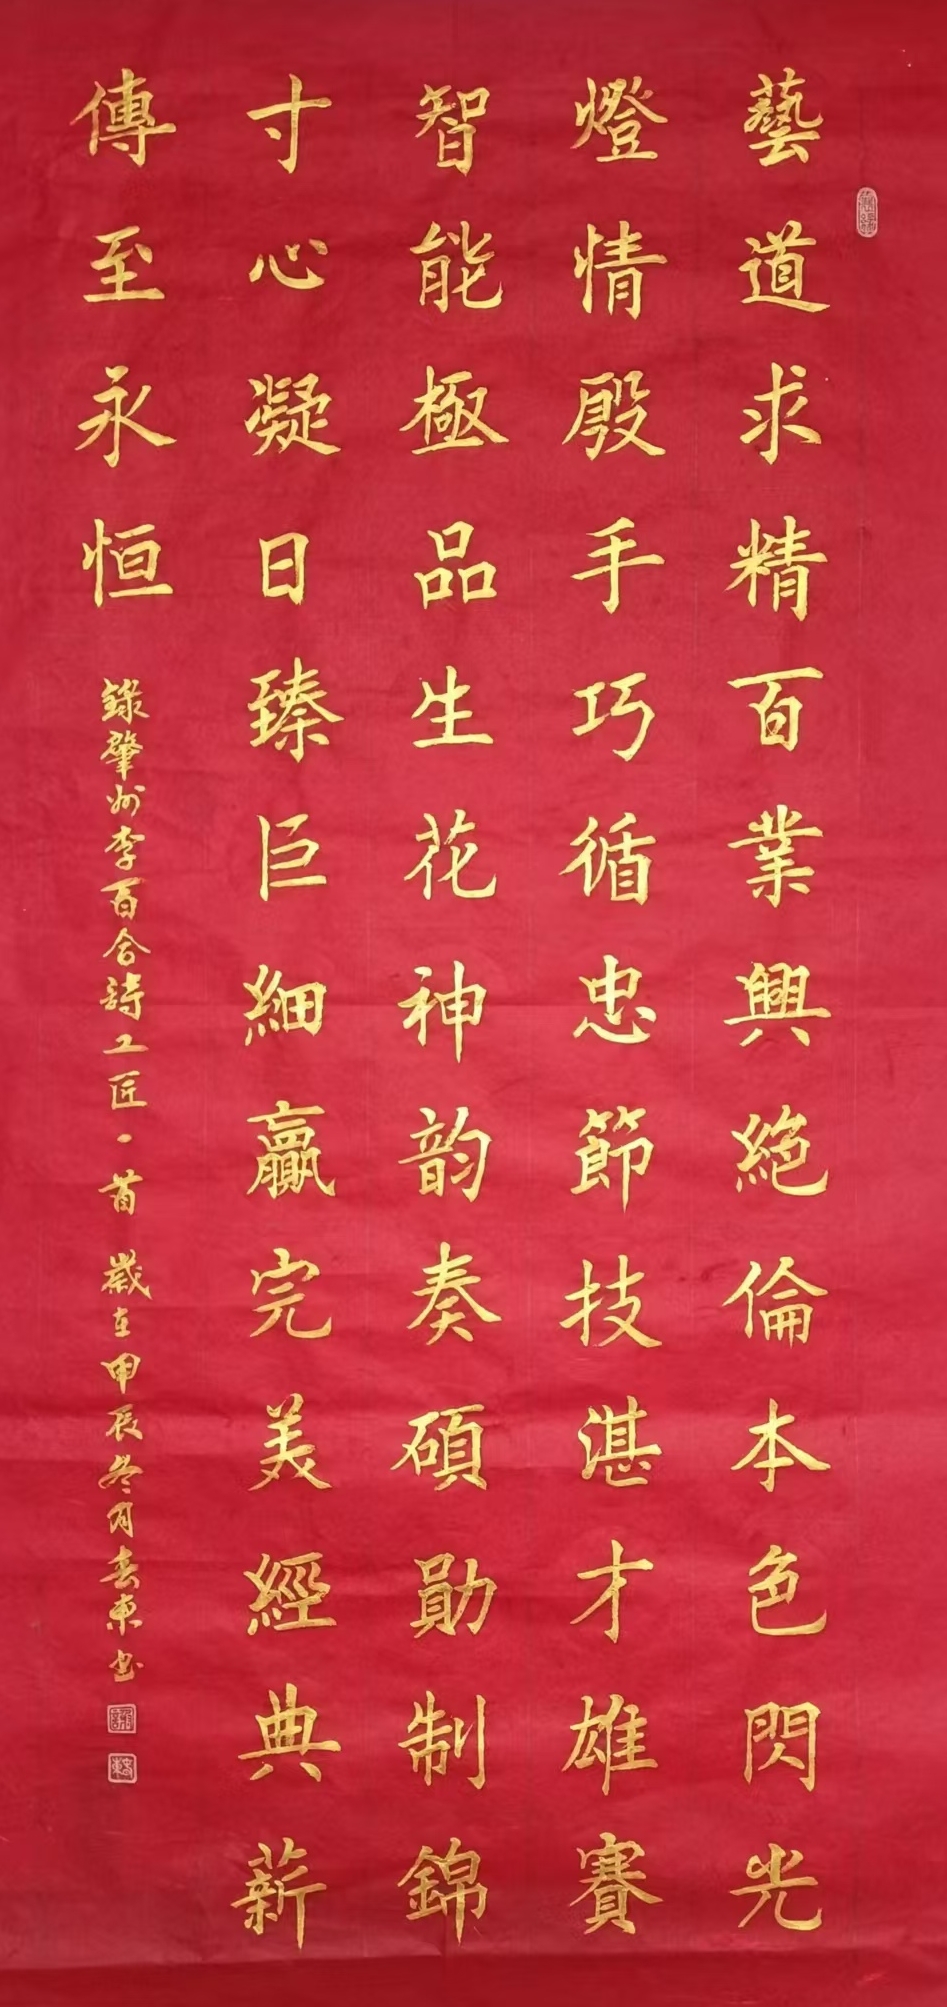 藝道求精百業興絕倫本色閃光
燈情殷手巧循忠節技湛才雄賽
智能極品生花神韵奏碩勛制錦
寸心凝日臻巨細贏完美經典薪
傳至永恒
錄肇州李百合詩工匠一首 歲在甲辰冬月春東书